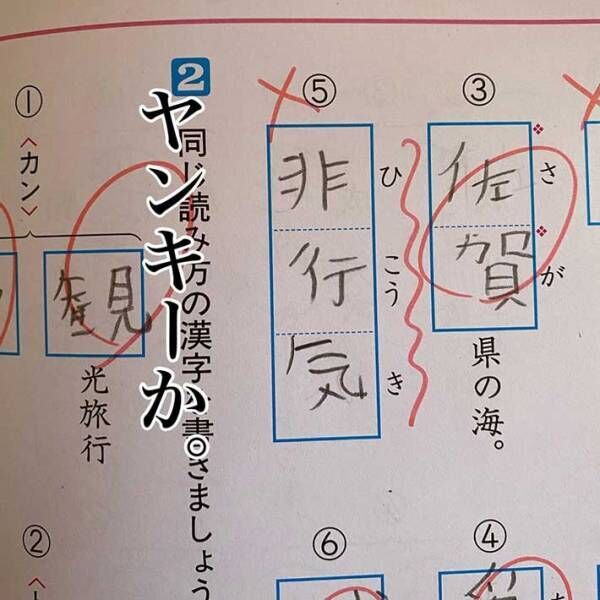 ③
佐賀
さが
県の海。
④
⑤
非行気
ひこうき
⑥
2
同じ読み方の漢字 書きましょう
ヤンキーか。
①
〈カン〉
観
光旅行
②